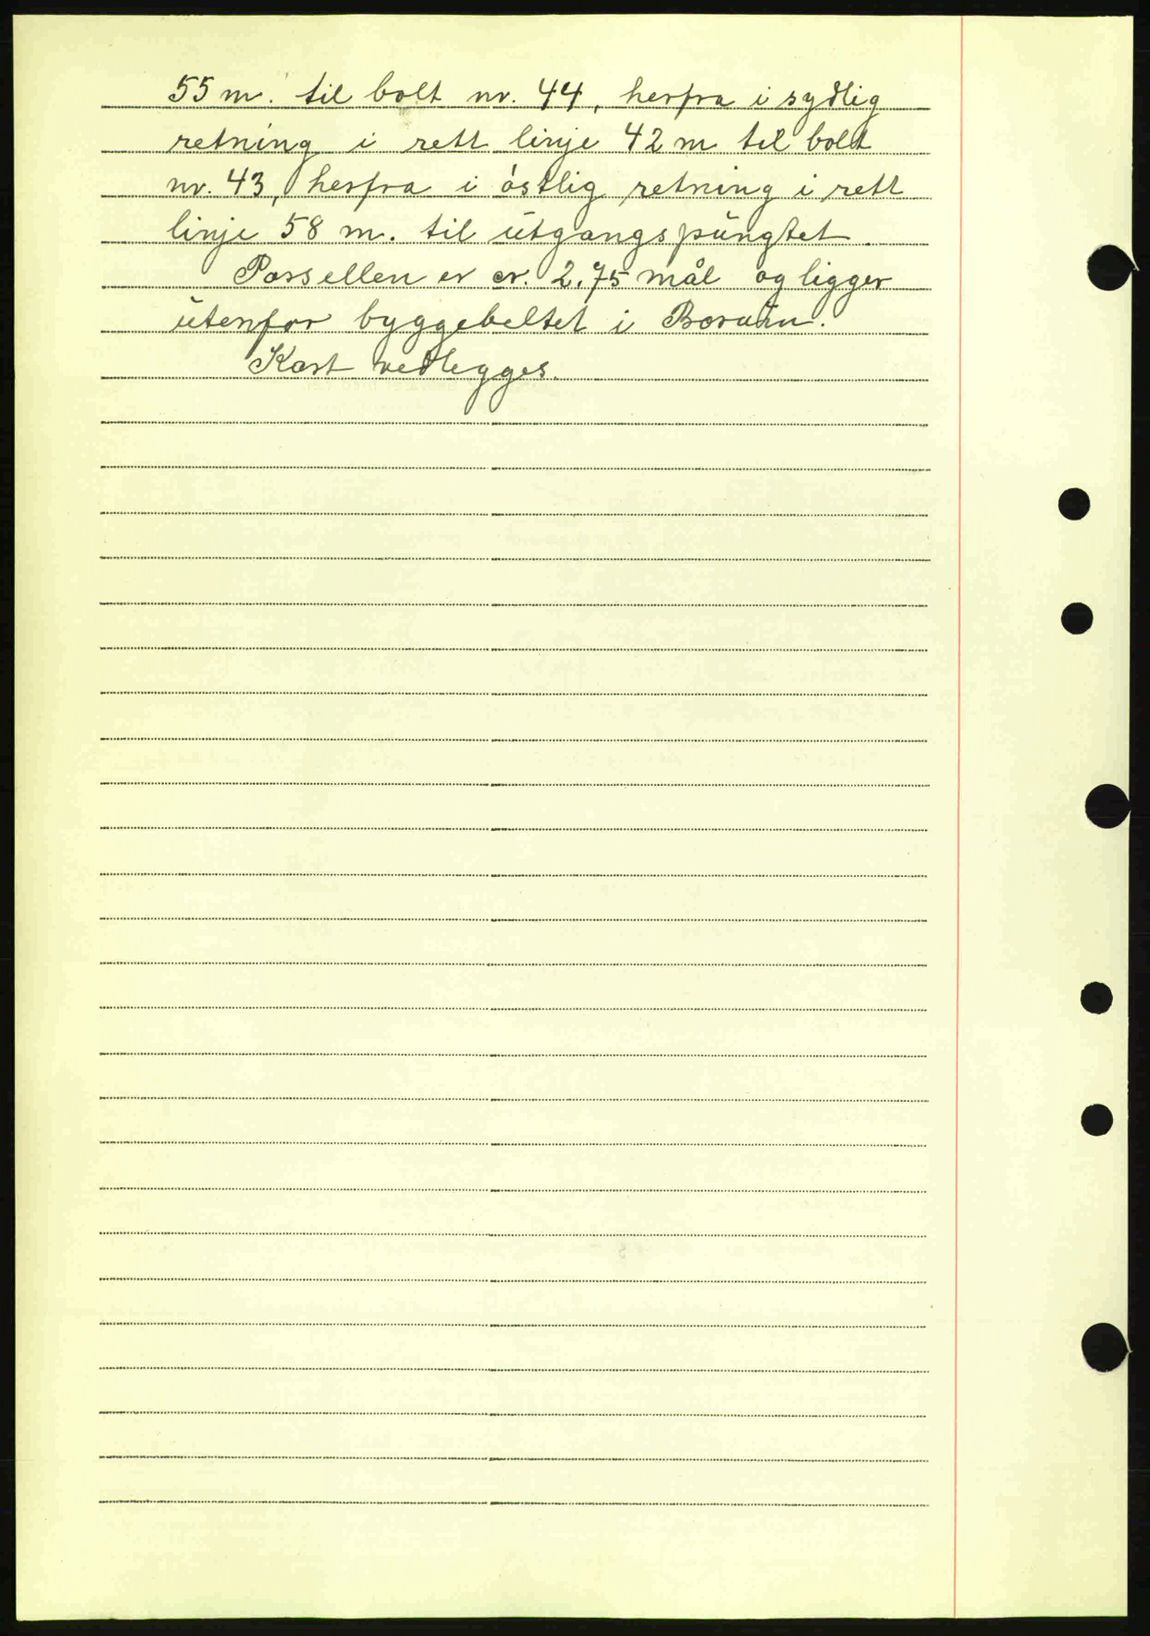 55 m. til bolt nr. 44, herfra i sydlig
retning i rett linje 42 m til bolt
nr. 43, herfra i østlig retning i rett
linje 58 m. til utgangspungtet.
Parsellen er cr. 2.75 mål og ligger
utenfor byggebeltet i Bærum.
Kart vedlegges.